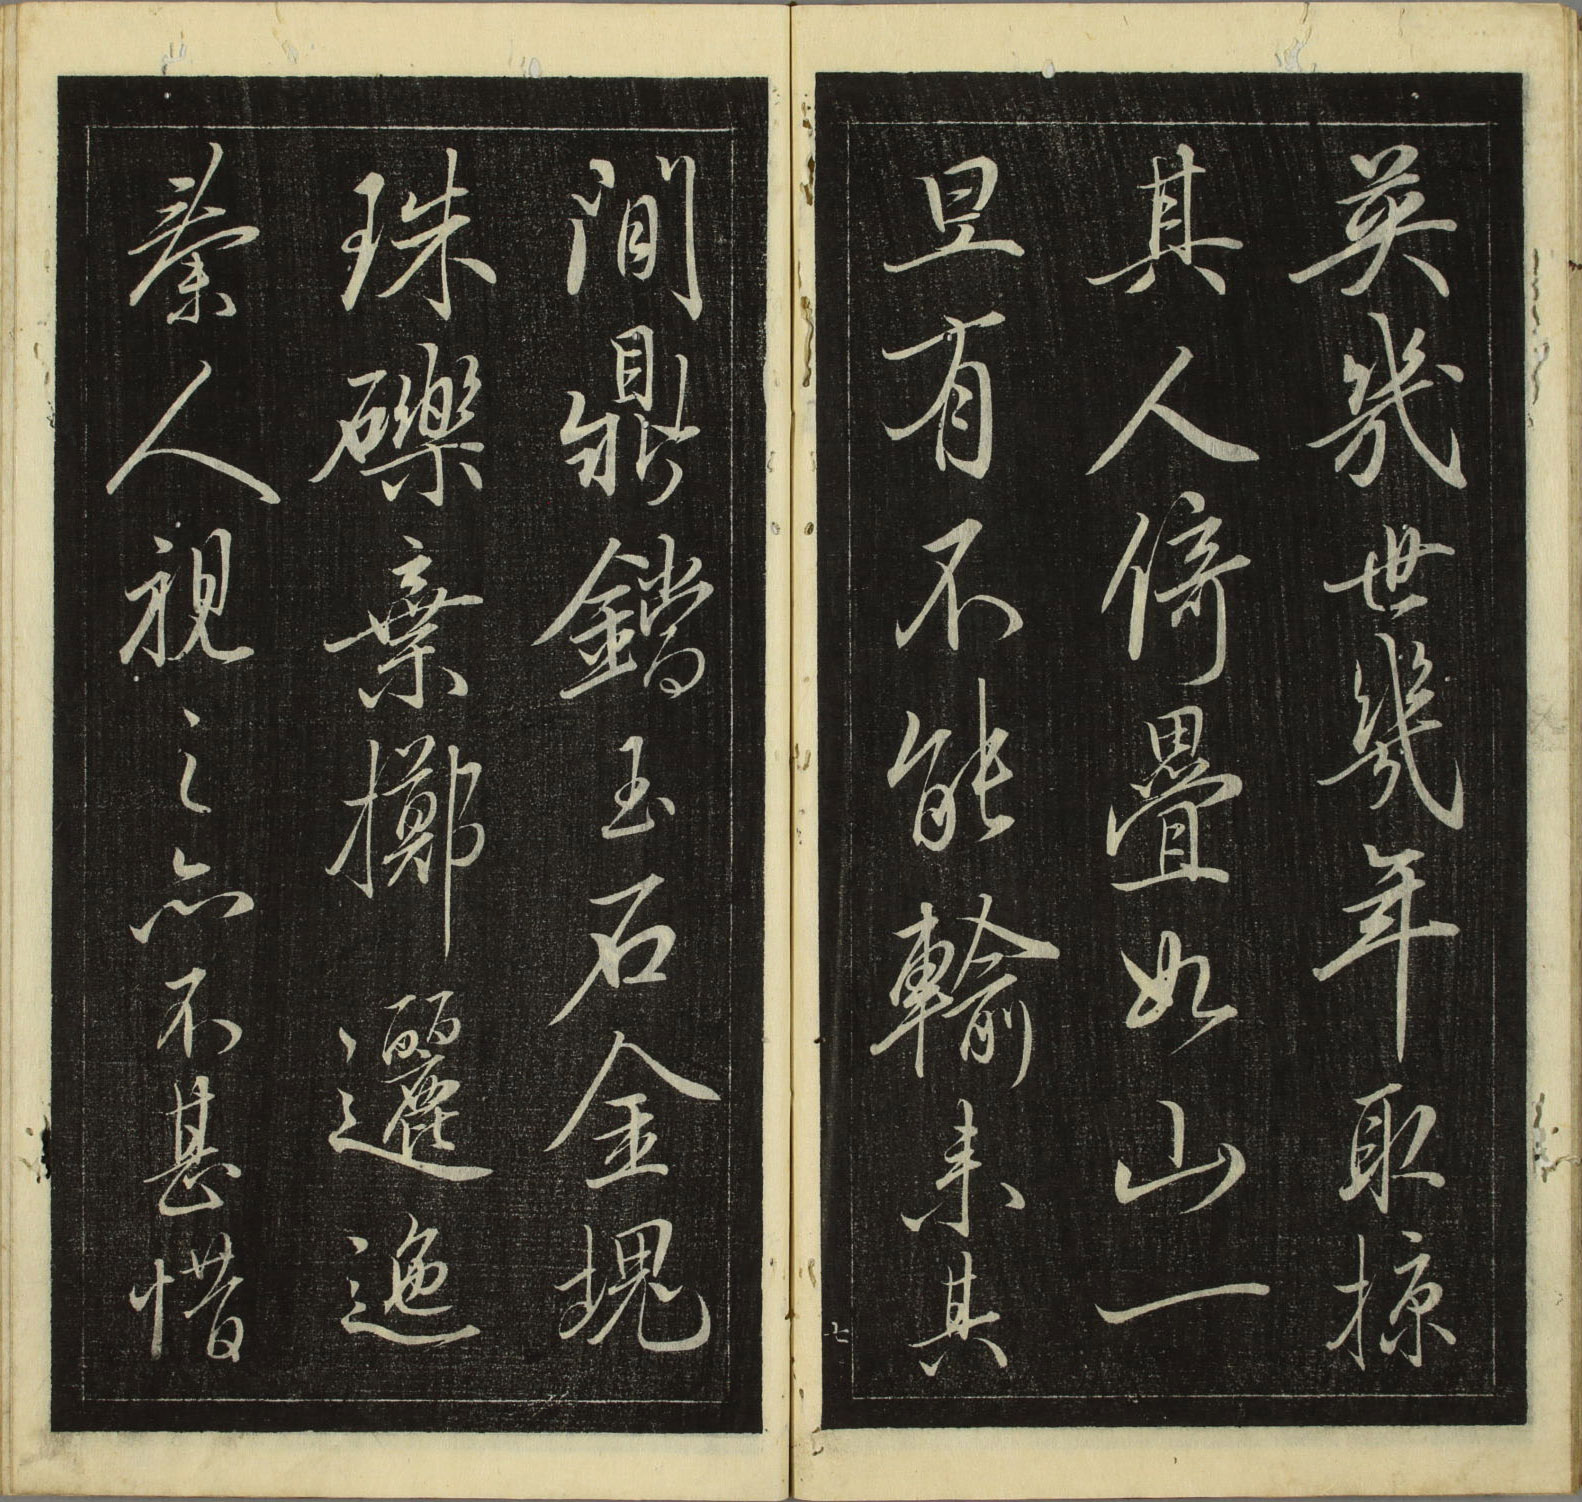 英幾世幾年取掠
其人倚疊如山一
旦有不能輸來其
間鼎鐺玉石金塊
珠礫棄擲邐迤
秦人視之亦不甚惜
七